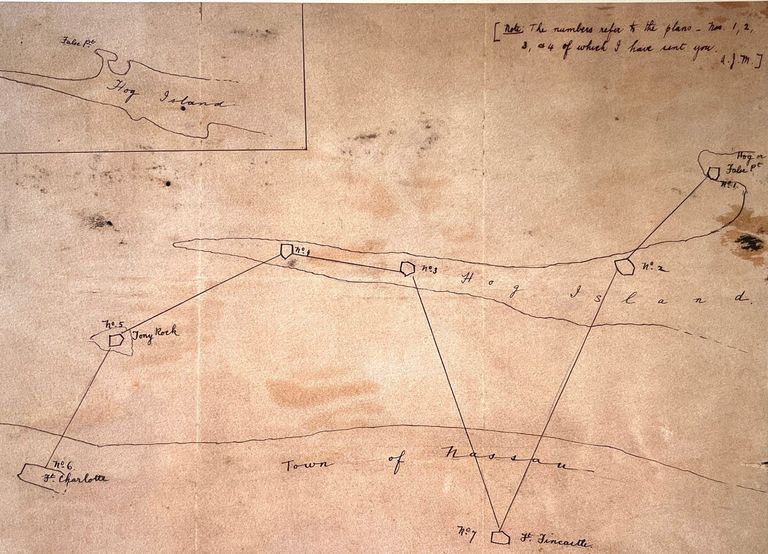 [Note The numbers refer to the plans - Nos. 1, 2,
3, & 4 of which I have sent you.
A.J.M.]
False Pt
Hog Island
Hog or
False Pt
No 1.
No 4
No 3
No 2
Hog Island.
No 5
Tony Rock
Town of Nassau
No 6
Ft Charlotte
No 7
Ft Fincastle